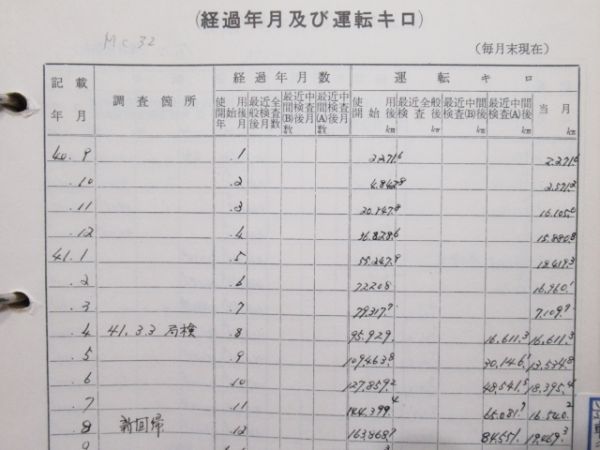 (経過年月及び運転キロ)
Mc 32
(毎月末現在)
記載年月 調査箇所 経過年月数 運転キロ
使用開始後年月 最近全般検査後月数 最近中間(B)検査後月数 最近中間(A)検査後月数 使用開始後km 最近全般検査後km 最近中間(B)検査後km 最近中間(A)検査後km 当月km
40.9 .1 2.271.6 2.271.6
.10 .2 4.842.8 2.571.2
.11 .3 20.947.8 16.105.0
.12 .4 36.828.6 15.880.8
41.1 .5 55.247.9 18.419.3
.2 .6 72208 16.960.1
.3 .7 79317.7 7.109.7
.4 41.3.3 局検 .8 95.929. 16.611.3 16.611.3
.5 .9 109463.8 30.146.1 13.534.8
.6 .10 127.859.2 48.541.5 18.395.4
.7 .11 144.399.4 65.081.7 16.540.2
.8 .12 163.868.7 84.551. 19.469.3
9